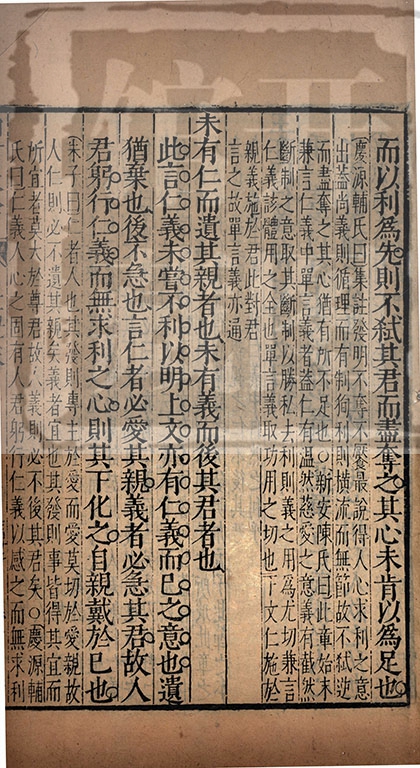 而以利爲先則不弑其君而盡奪之其心未肯以爲足也
慶源輔氏曰集註發明不奪不饜最說得人心求利之意
出蓋尚義則循理而有制徇利則橫流而無節故不弑逆
而盡奪之其心猶有所不足也○新安陳氏曰此章始末
兼言仁義中單言義者蓋仁有温然慈愛之意義有截然
斷制之意取其斷制以勝私去利則義之用爲尤切兼言
仁義該體用之全也單言義取功用之切也下文仁施於
親義施於君此對君
言之故單言義亦通
未有仁而遺其親者也未有義而後其君者也
此言仁義未嘗不利以明上文亦有仁義而已之意也遺
猶棄也後不急也言仁者必愛其親義者必急其君故人
君躬行仁義而無求利之心則其下化之自親戴於已也
朱子曰仁者人也其發則專主於愛而愛莫切於愛親故
人仁則必不遺其親矣義者宜也其發則事皆得其宜而
所宜者莫大於尊君故人義則必不後其君矣○慶源輔
氏曰仁義人心之固有人君躬行仁義以感之而無求利